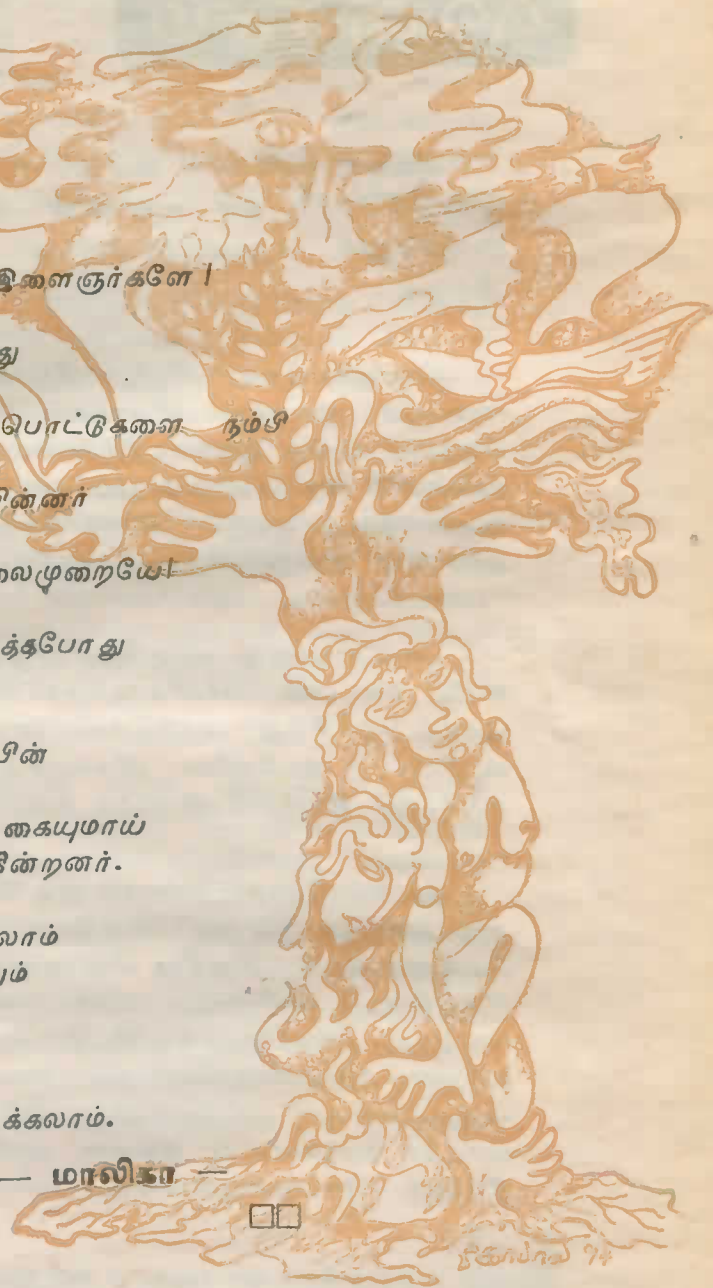 இளைஞர்களே !
து
பொட்டுகளை நம்பி
ின்னர்
லைமுறையே!
த்தபோது
பின்
கையுமாய்
கின்றனர்.
லாம்
ும்
க்கலாம்.
— மாலிகா —